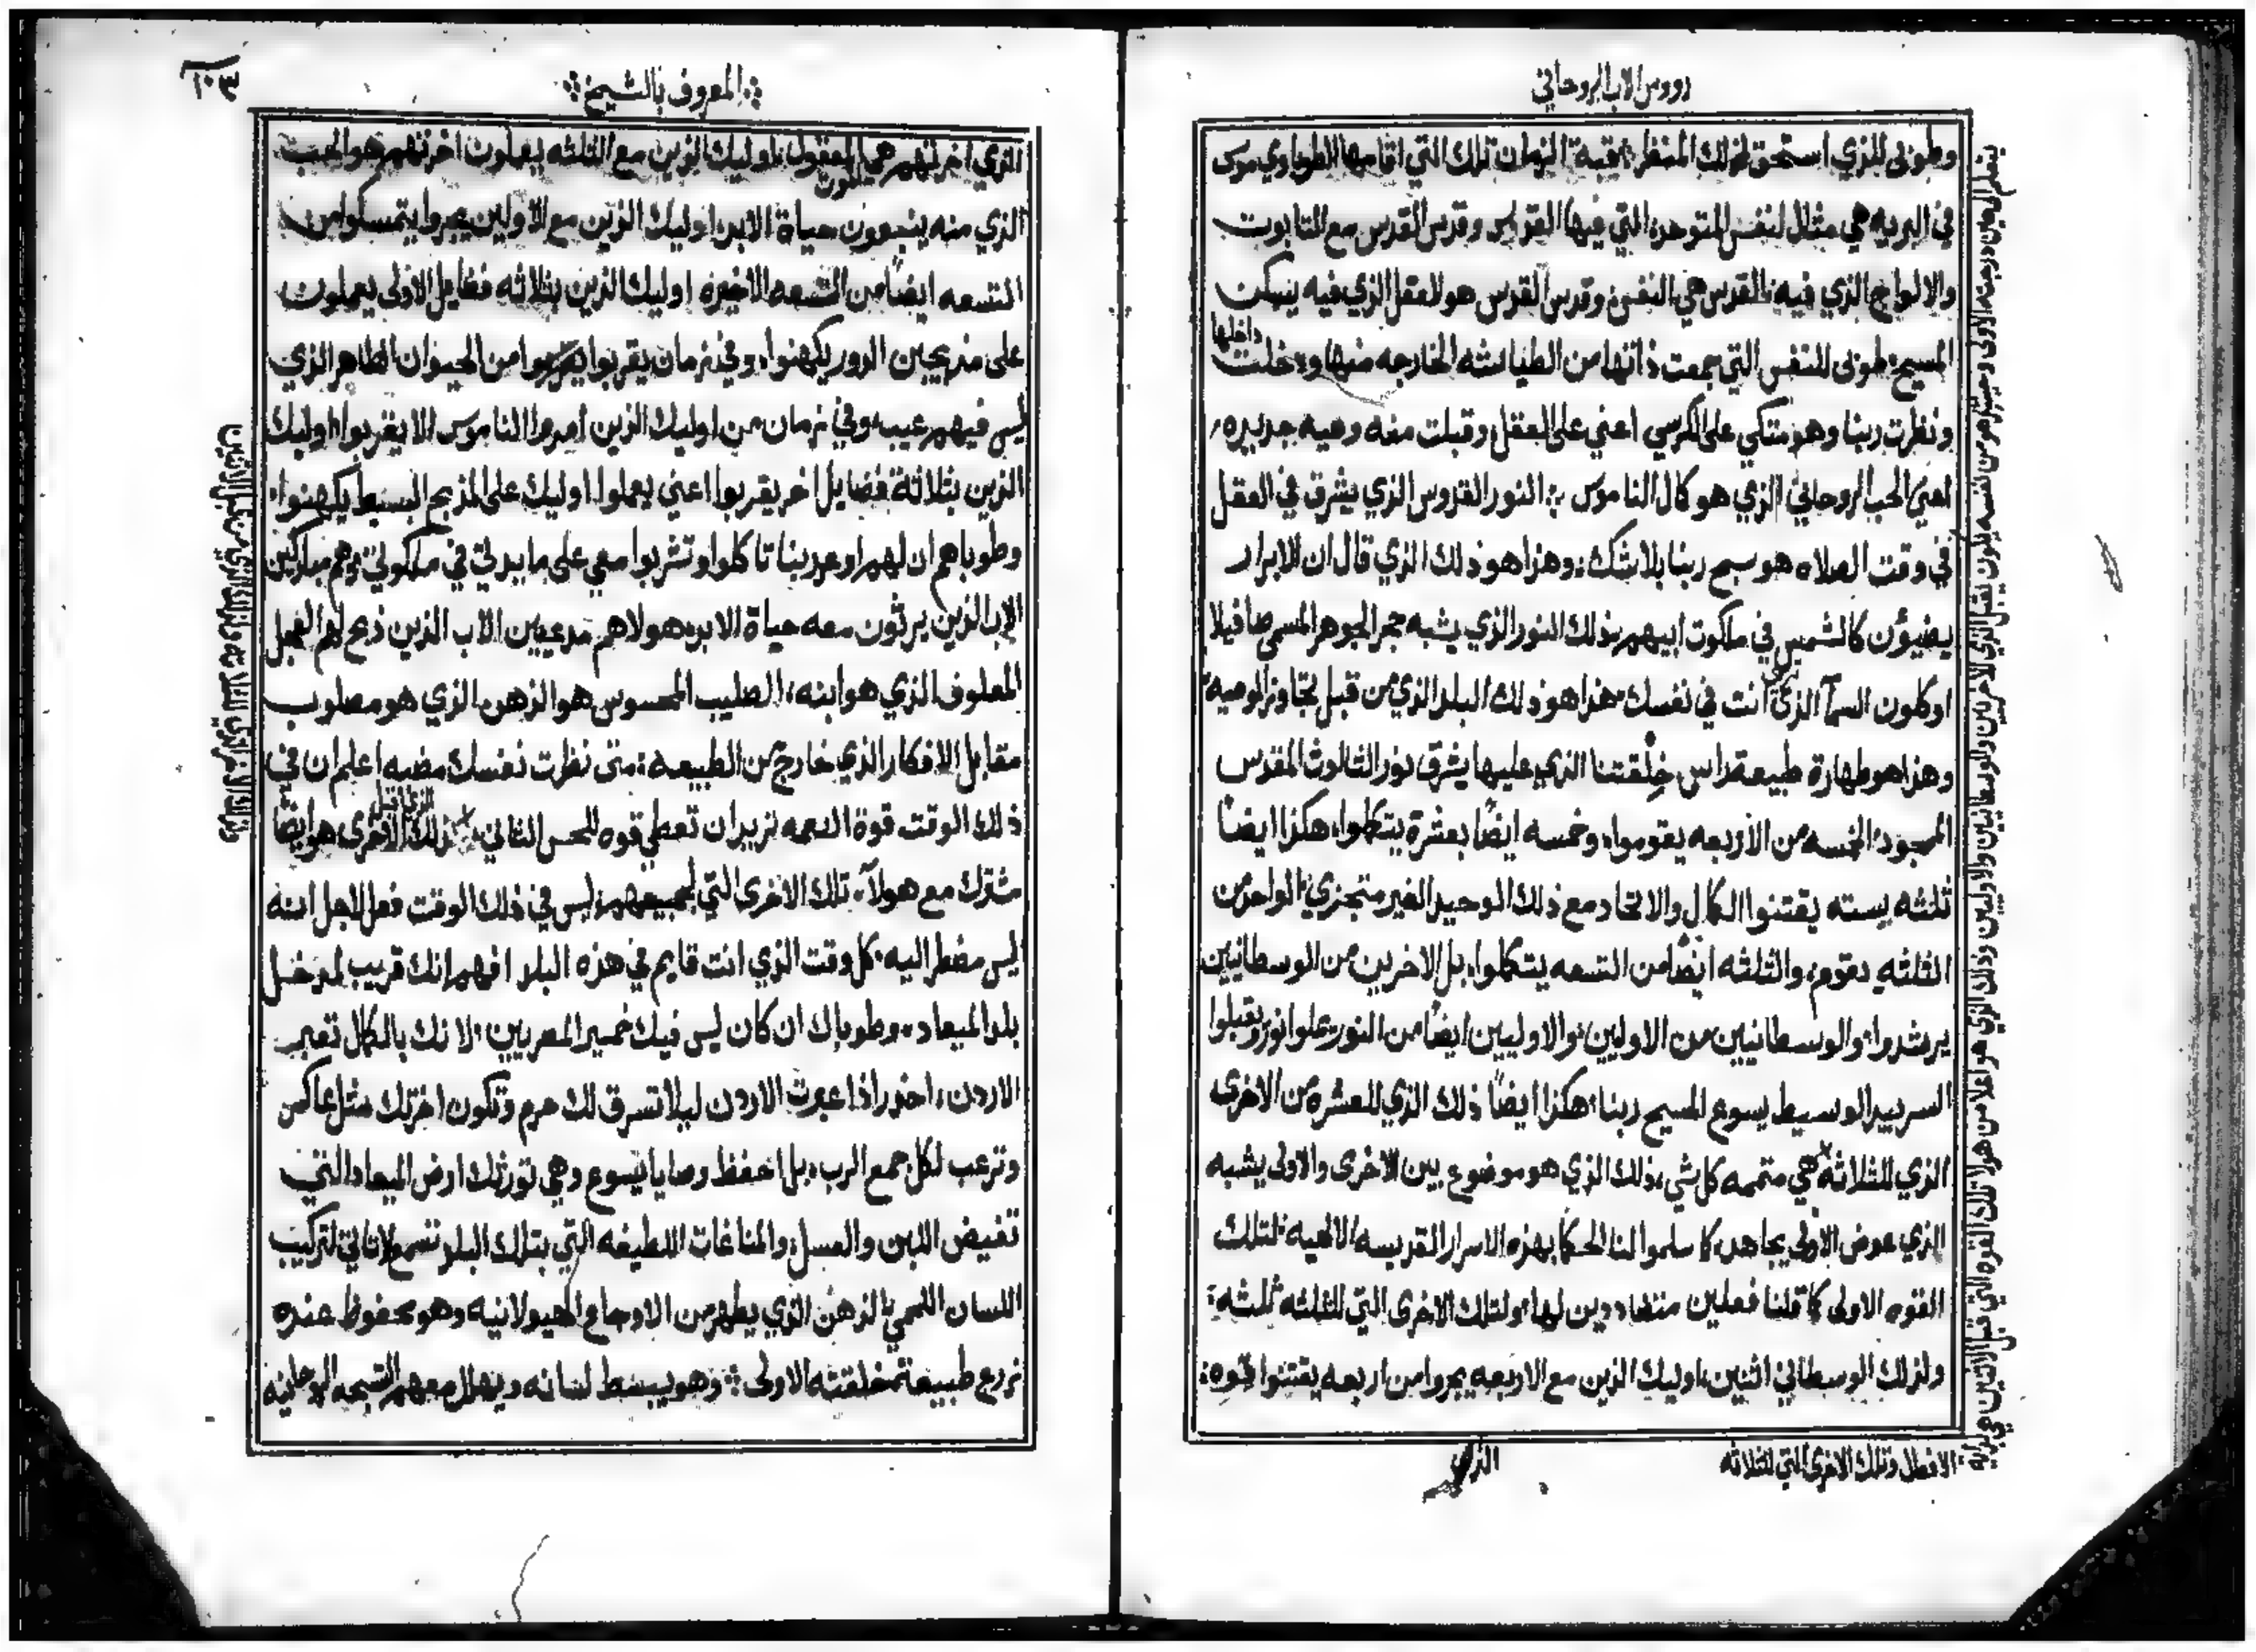 رووس الاب الروحاني
وطوبى للذي استحق لذلك المنظر؛ قبة الزمان تلك التي اقامها الطوباوي موسى
في البريه هي مثال لنفس المتوحد؛ التي فيها القدس وقدس القدس مع التابوت
والالواح الذي فيه؛ القدس هي النفس؛ وقدس القدس هو العقل الذي فيه يسكن
المسيح؛ طوبى للنفس التي جمعت ذاتها من الطياشه الخارجه منها ودخلت داخلها
ونظرت ربنا وهو متكي على الكرسي اعني على العقل؛ وقبلت منه وصيه جديده،
اعني الحب الروحاني الذي هو كمال الناموس ؛ النور القدوس الذي يشرق في العقل
في وقت الصلاه هو سيح ربنا بلا شك؛ وهذا هو ذلك الذي قال ان الابرار
يضيؤن كالشمس في ملكوت ابيهم؛ ذلك النور الذي يشبه حجر الجوهر المسمى صافيلا
او كلون السمآ الذي انت في نفسك؛ هذا هو ذلك البلد الذي من قبل تجاوز الوصيه؛
وهذا هو طهارة طبيعة راس خلقتنا الذي عليها يشرق نور الثالوث المقدس
المسجود؛ الخمسه من الأربعه يقوموا، وخمسه ايضًا بعشرة يتكلوا، هكذا ايضًا
ثلثه بسته يقتنوا الكمال والاتحاد مع ذلك الوحيد الغير متجزي؛ الواحد من
الثلثه يقوم، والثلثه ايضًا من التسعه يتكلوا، بل الاخرين من الوسطانيين
يرشدوا، والوسطانيين من الاوليين، والاوليين ايضًا من النور يقبلوا نور ويقبلوا
السربيد الوسيط يسوع المسيح ربنا؛ هكذا ايضًا ذلك الذي للعشره من الاخرى
الذي للثلاثه هي متممه كل شي، ذلك الذي هو موضوع بين الاخرى والاولى يشبه
الذي عوض الاولى يجاهد، كما سلموا لنا الحكما بهذه الاسرار القديسه الالهيه؛ لتلك
القوه الاولى كما قلنا فعلين متضاددين لها، ولتلك الاخرى التي للثلثه ثلثه؛
ولذلك الوسطاني اثنين، اوليك الذين مع الاربعه يجروا من اربعه يقتنوا قوه؛
الافطل وتلك الاخرى التي للثلاثه
الذي
المعروف بالشيخ
١٠٣
الذي اخرتهم هي المعقول؛ اوليك الذين مع الثلثه يعملون اخرتهم هو الحب
الذي منه ينبعون حياة الابد؛ اوليك الذين مع الاولين عبروا يتمسكوا من
التسعه ايضًا من التسعه الاخيره اوليك الذين بثلاثه فضايل الاولى يعملون
على مذبحين الدور يكهنوا، وفي زمان يقربوا من الحيوان الطاهر الذي
ليس فيهم عيب، وفي زمان من اوليك الذين امر الناموس الا يقربوا، اوليك
الذين بثلاثة فضايل اخر يقربوا اعني يعملوا، اوليك على المذبح البسيط يكهنوا؛
وطوباهم ان لهم اوعد ربنا تاكلوا وتشربوا معي على مايدتي في ملكوتي؛ وهم مباركين
الاب الذين يرثون معه حياة الابد؛ هولاهم مدعيين الاب الذين ذبح لهم العجل
المعلوف الذي هو ابنه، الصليب المحسوس هو الذهن الذي هو مصلوب
مقابل الافكار الذي خارج من الطبيعه؛ متى نظرت نفسك مضيه اعلم ان في
ذلك الوقت قوة النعمه تريد ان تعطي قوه للحس الثاني؛ ذلك الاخرى هو ايضًا
مشترك مع هولآء تلك الاخرى التي لجميعهم؛ ليس في ذلك الوقت فعل لاجل انه
ليس مضطر اليه؛ كل وقت الذي انت قايم في هذه البلد افهم انك قريب لمدخل
بلد الميعاد، وطوباك ان كان ليس فيك خمير المصريين؛ لانك بالكمال تعبر
الاردن، احذر اذا عبرت الاردن ليلا تسرق لك حرم وتكون اخرتك مثل عاكن
وترعب لكل جمع الرب، بل احفظ وصايا يسوع وهي تورثك ارض الميعاد التي
تفيض اللبن والعسل؛ والمناغات اللطيفه التي بتلك البلد تسمع
اللسان اللحمي؛ الذهن الذي يطهر من الاوجاع الهيولانيه وهو محفوظ عنده
زرع طبيعة خلقته الاولى؛ وهو يبسط لسانه ويهلل معهم التسبحه الروحانيه